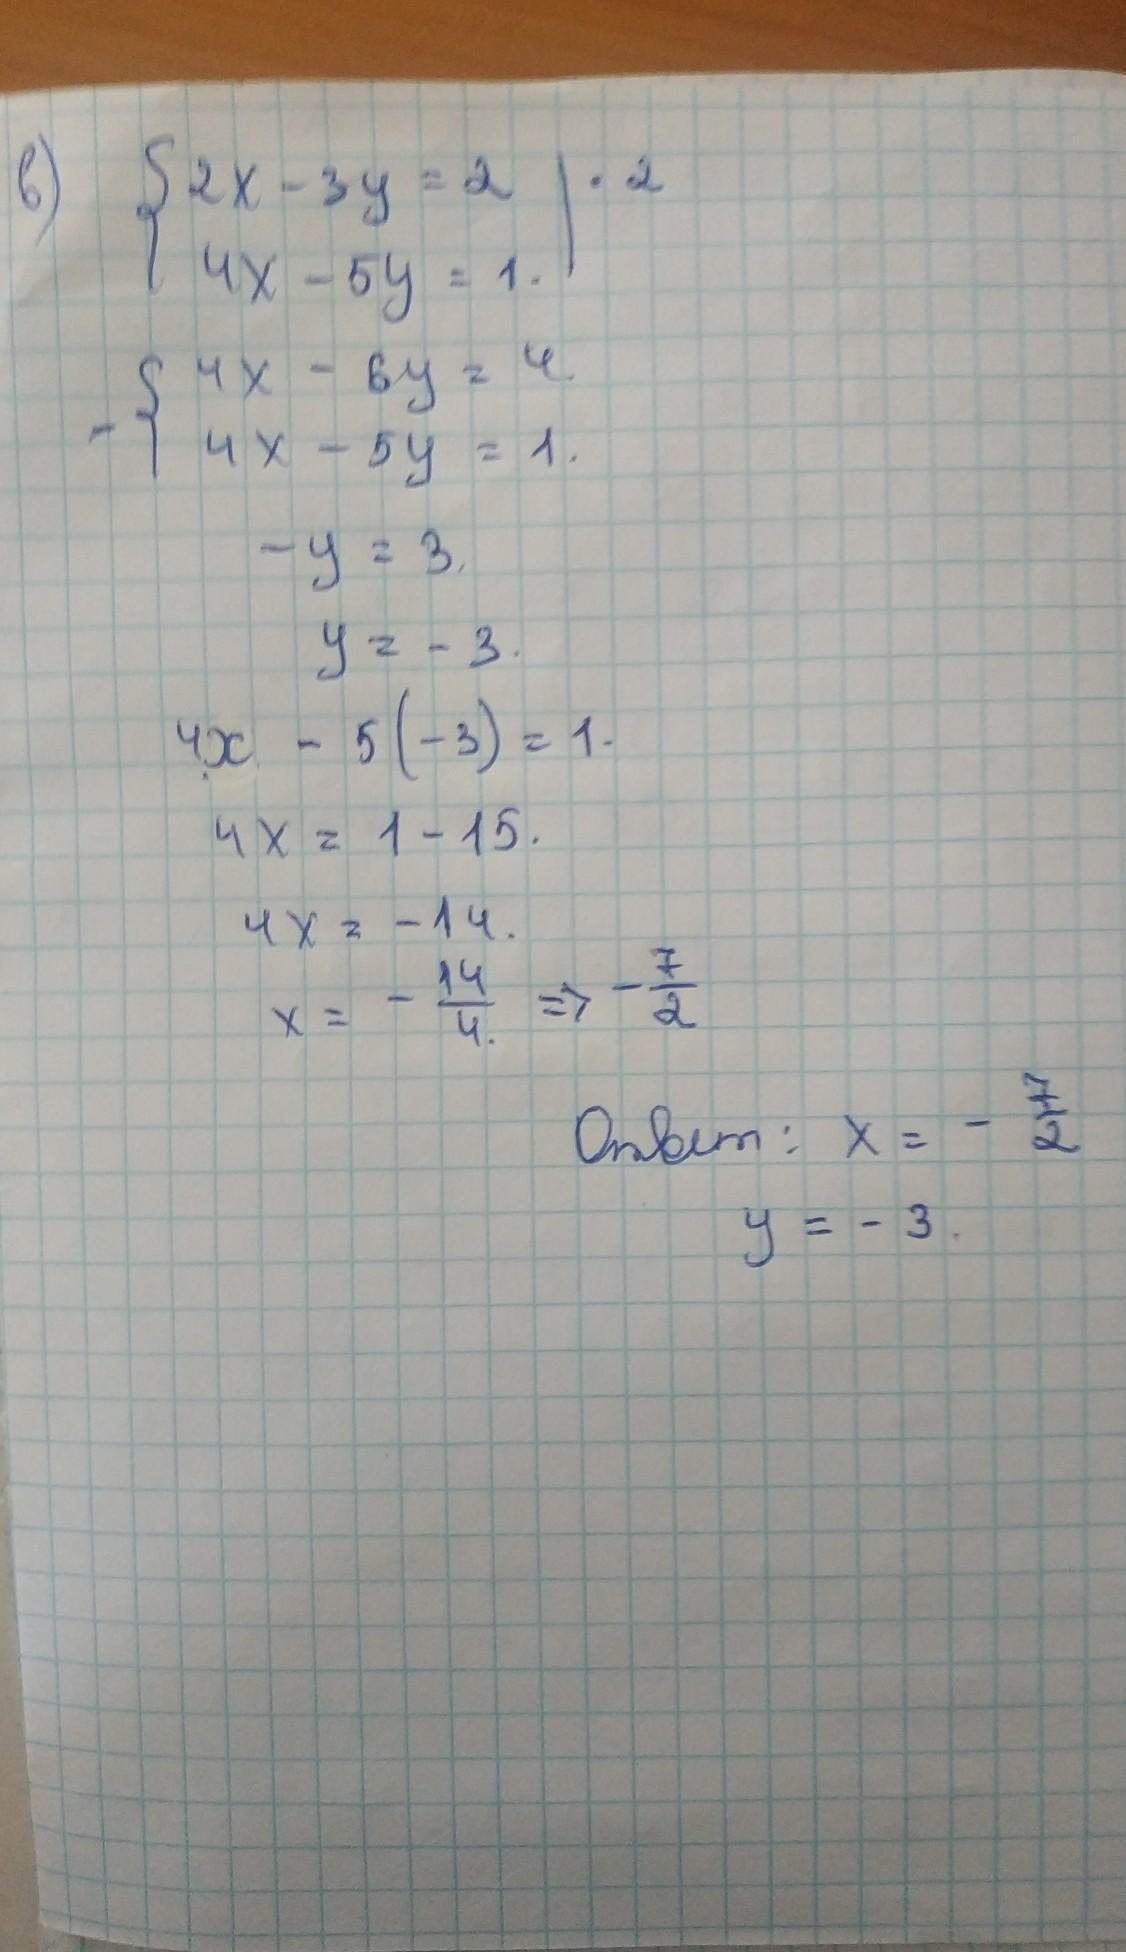 в) { 2x - 3y = 2 | · 2
4x - 5y = 1.
- { 4x - 6y = 4
4x - 5y = 1.
-y = 3.
y = - 3.
4x - 5(-3) = 1.
4x = 1 - 15.
4x = - 14.
x = - 14/4. => - 7/2
Ответ: x = - 7/2
y = - 3.